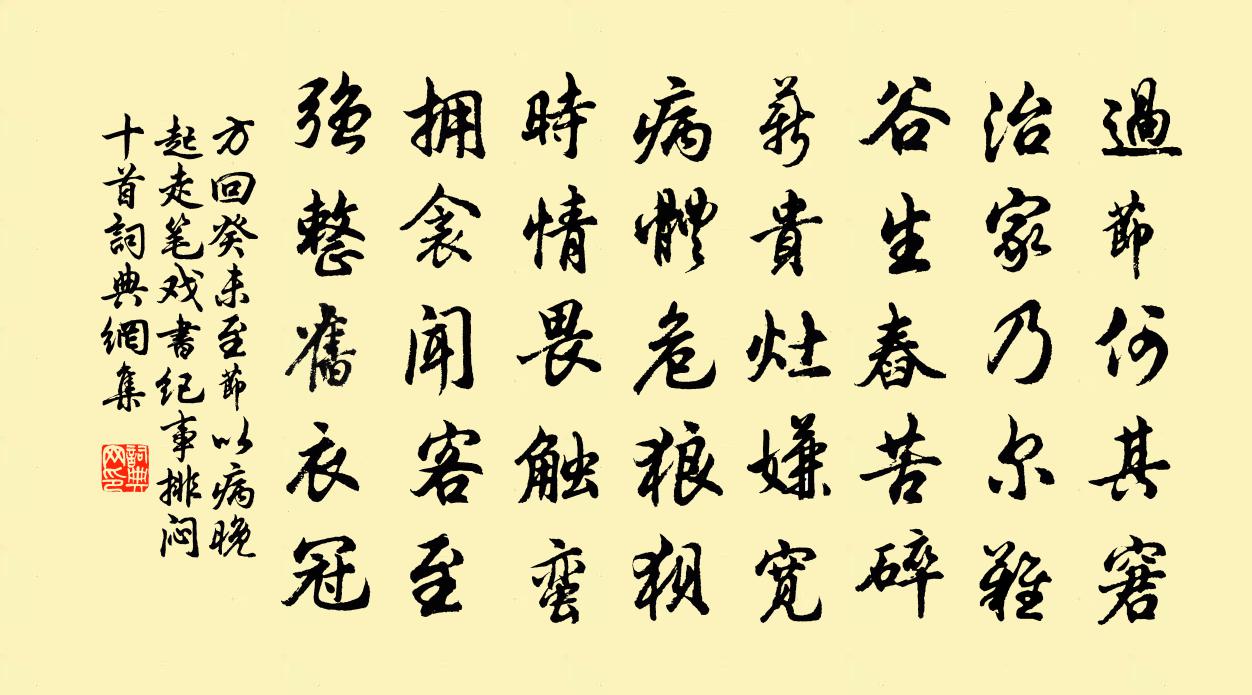 過節何其窘
治家乃尔難
谷生舂苦碎
薪貴灶嫌寬
病體危狼狽
時情畏触蛮
拥衾聞客至
強整舊衣冠
方回癸未至節以病晚
起走笔戏書纪事排闷
十首詞典網集
詞典网印